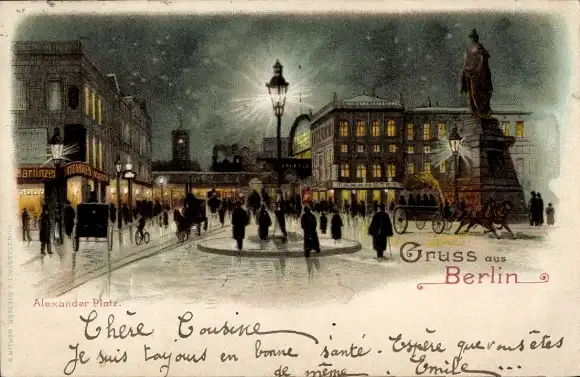 Gruss aus
Berlin
Alexander Platz.
Chère Cousine
Je suis toujous en bonne santé. Espère que vous êtes
de même. Emile ...